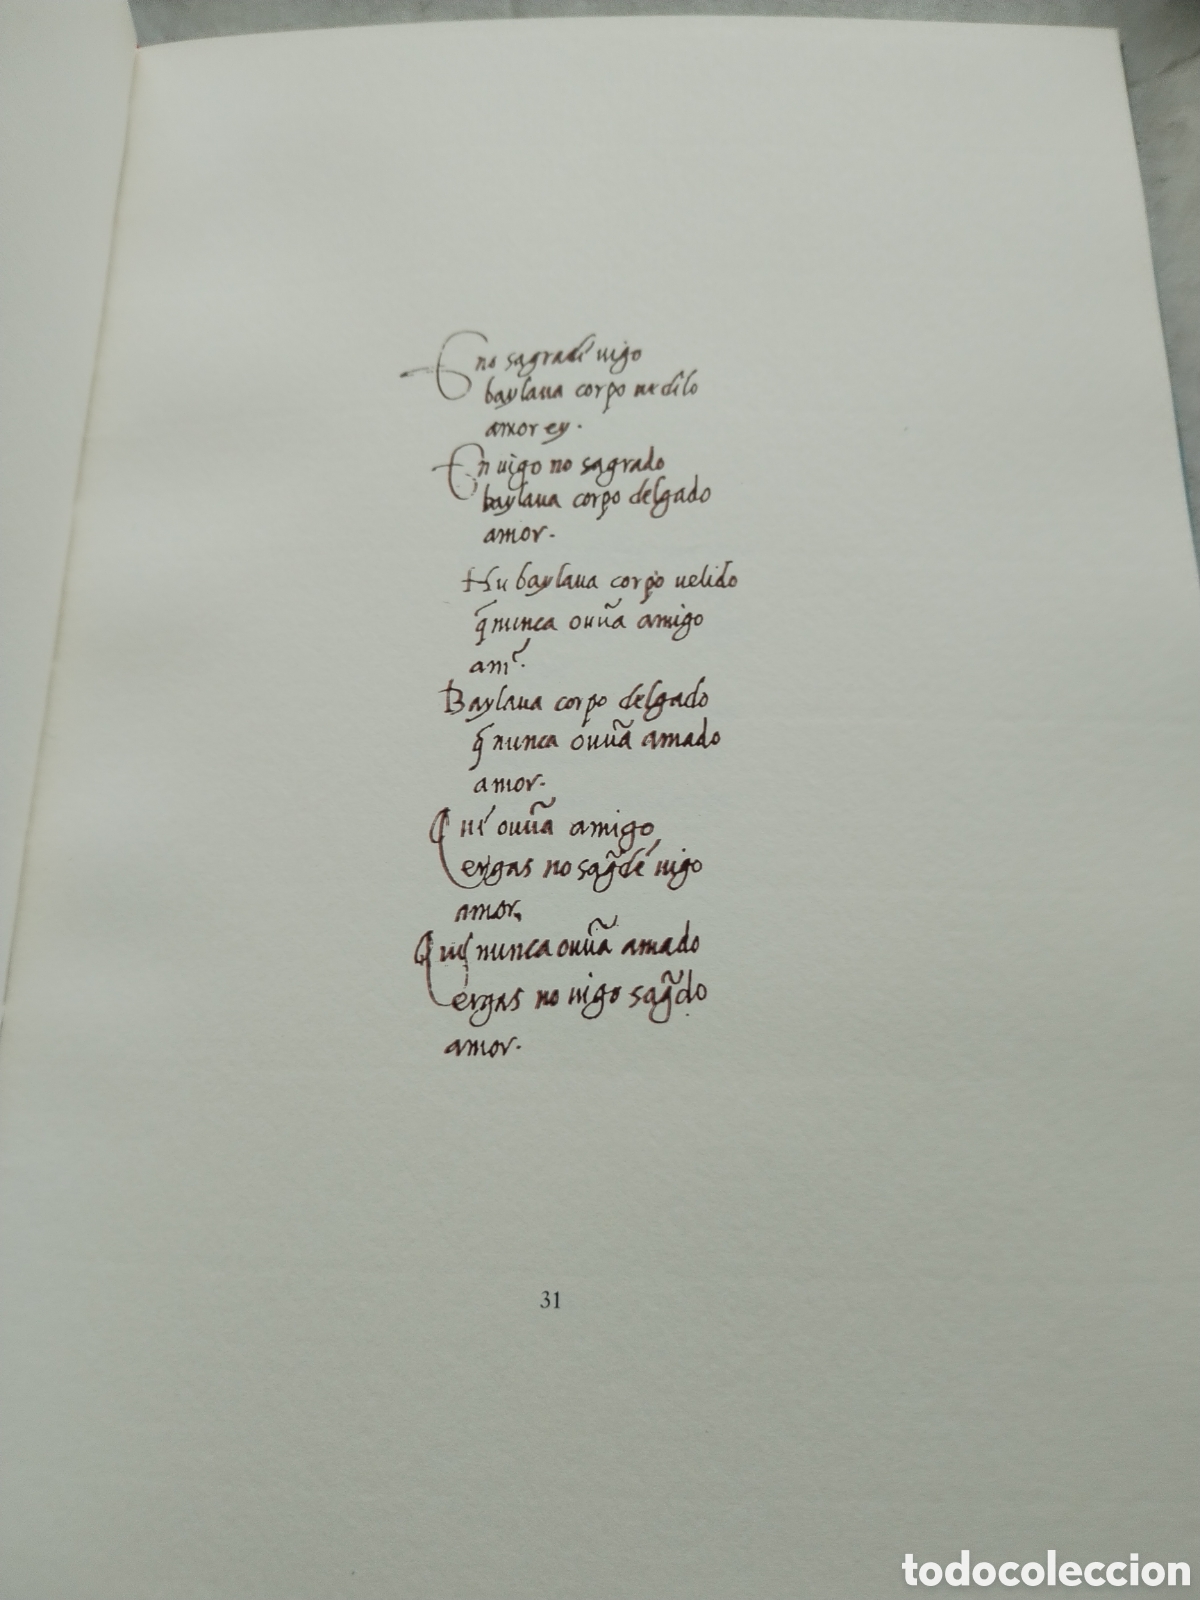 Eno sagrade͂ uigo
baylaua corpo uedilo
amor ey.
En uigo no sagrado
baylaua corpo delgado
amor.
Hu baylaua corpo uelido
q̃ nunca ouu̾a amigo
am̾.
Baylaua corpo delgado
q̃ nunca ouu̾a amado
amor.
Que͂ ouu̾a amigo
ergas no sag̾de͂ uigo
amor.
Que͂ nunca ouu̾a amado
ergas no uigo sag̾do
amor.
31
todocoleccion